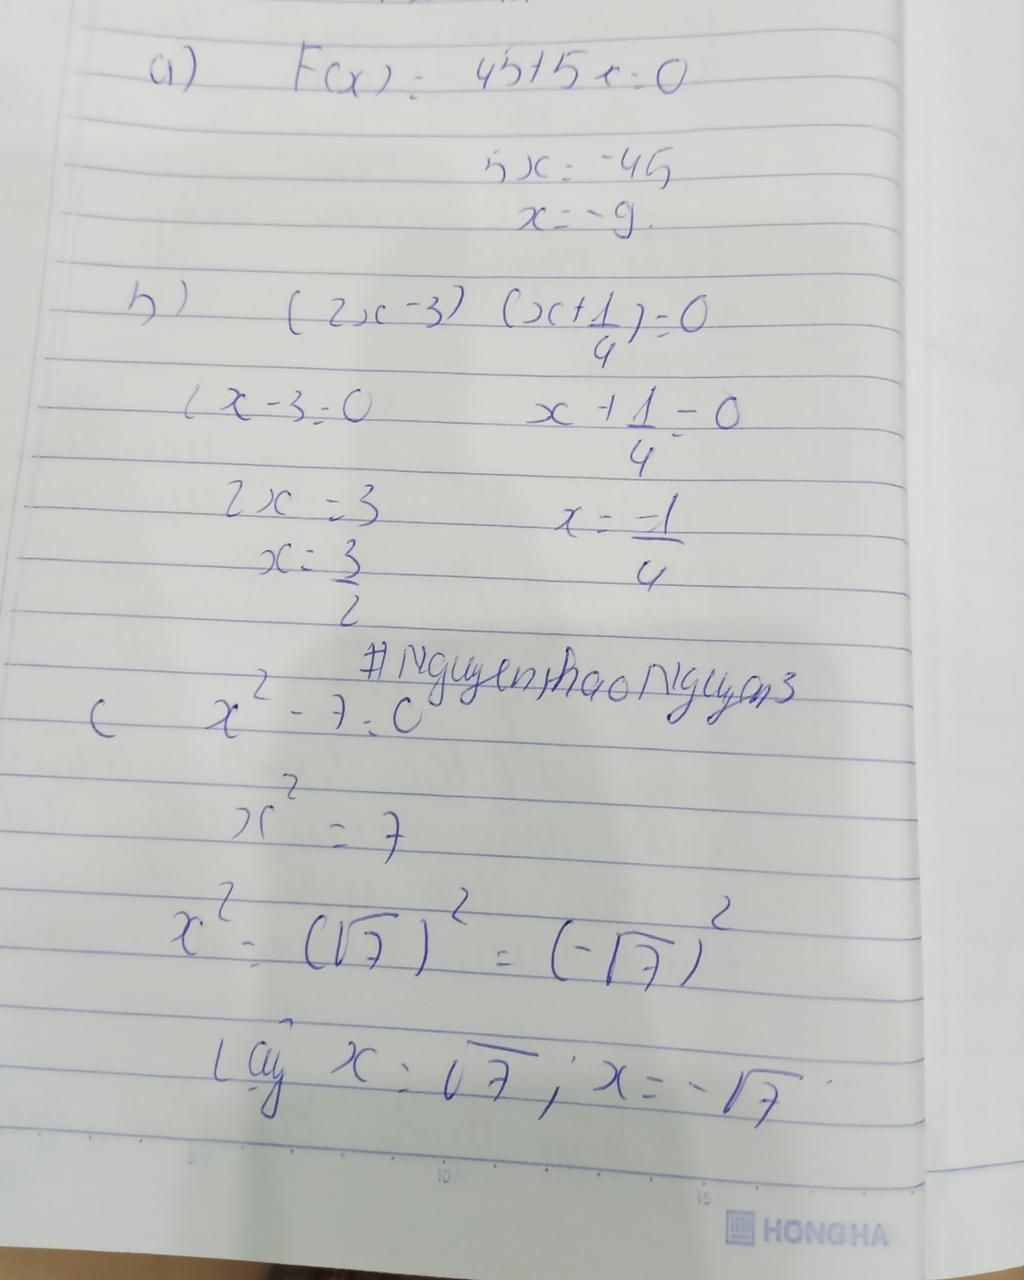 a) F(x) = 45+5x=0
5x = -45
x = -9.
b) (2x-3) (x+1/4)=0
2x-3=0 x+1/4=0
2x = 3 x = -1/4
x = 3/2
#NguyenthaoNguyen3
c x² - 7 = 0
x² = 7
x² = (√7)² = (-√7)²
x = √7 ; x = -√7
5 10 15
HONG HA